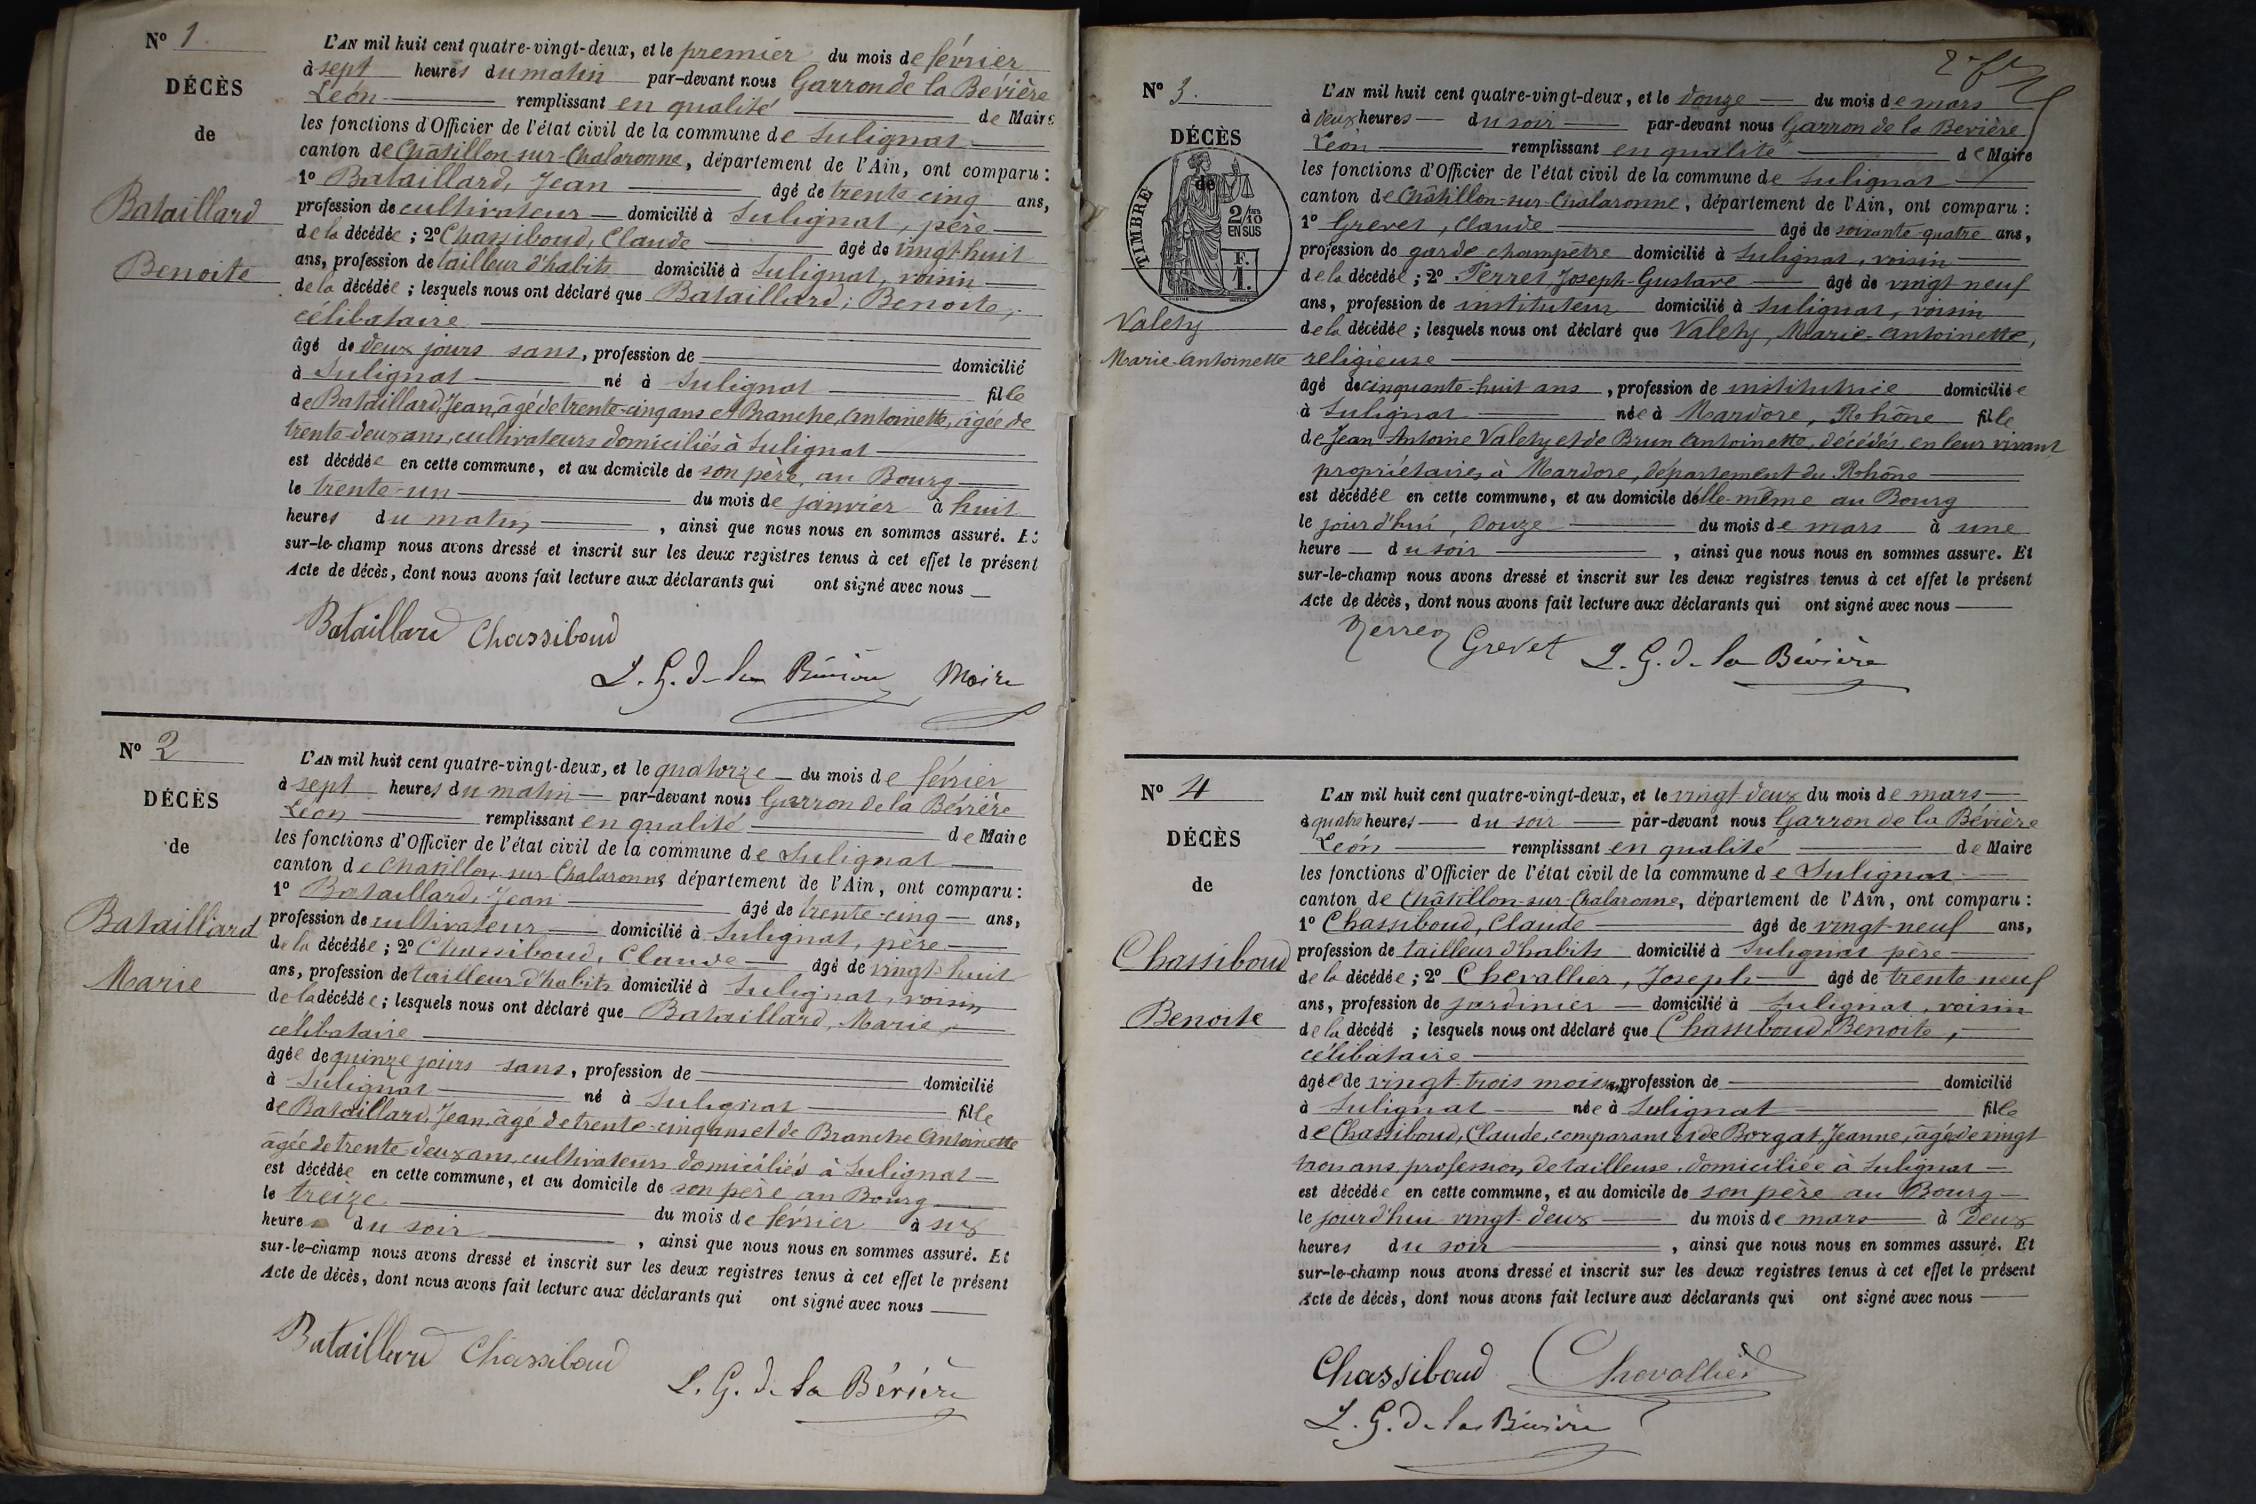 Nº 1
DÉCÈS
de
Bataillard
Benoite
L'AN mil huit cent quatre-vingt-deux, et le premier du mois de février
à sept heures du matin par-devant nous Garron de la Bévière
Léon remplissant en qualité de Maire
les fonctions d'Officier de l'état civil de la commune de Sulignat
canton de Châtillon-sur-Chalaronne, département de l'Ain, ont comparu :
1º Bataillard, Jean âgé de trente-cinq ans,
profession de cultivateur domicilié à Sulignat, père
de la décédée ; 2º Chassiboud, Claude âgé de vingt-huit
ans, profession de tailleur d'habits domicilié à Sulignat, voisin
de la décédée ; lesquels nous ont déclaré que Bataillard, Benoite,
célibataire
âgé de deux jours sans, profession de domicilié
à Sulignat né à Sulignat fille
de Bataillard, Jean, âgé de trente-cinq ans et Branche, Antoinette, âgée de
trente-deux ans, cultivateurs domiciliés à Sulignat
est décédée en cette commune, et au domicile de son père, au Bourg
le trente-un du mois de janvier à huit
heures du matin, ainsi que nous nous en sommes assuré. Et
sur-le-champ nous avons dressé et inscrit sur les deux registres tenus à cet effet le présent
Acte de décès, dont nous avons fait lecture aux déclarants qui ont signé avec nous
Bataillard Chassiboud
L. G. de la Bévière Maire
Nº 2
DÉCÈS
de
Bataillard
Marie
L'AN mil huit cent quatre-vingt-deux, et le quatorze du mois de février
à sept heures du matin par-devant nous Garron de la Bévière
Léon remplissant en qualité de Maire
les fonctions d'Officier de l'état civil de la commune de Sulignat
canton de Chatillon-sur-Chalaronne, département de l'Ain, ont comparu :
1º Bataillard, Jean âgé de trente-cinq ans,
profession de cultivateur domicilié à Sulignat, père
de la décédée ; 2º Chassiboud, Claude âgé de vingt-huit
ans, profession de tailleur d'habits domicilié à Sulignat, voisin
de la décédée ; lesquels nous ont déclaré que Bataillard, Marie,
célibataire
âgée de quinze jours sans, profession de domicilié
à Sulignat né à Sulignat fille
de Bataillard, Jean, âgé de trente-cinq ans et de Branche Antoinette
âgée de trente-deux ans, cultivateurs domiciliés à Sulignat
est décédée en cette commune, et au domicile de son père au Bourg
le treize du mois de février à six
heures du soir, ainsi que nous nous en sommes assuré. Et
sur-le-champ nous avons dressé et inscrit sur les deux registres tenus à cet effet le présent
Acte de décès, dont nous avons fait lecture aux déclarants qui ont signé avec nous
Bataillard Chassiboud
L. G. de la Bévière
Nº 3.
DÉCÈS
de
TIMBRE
2/10
EN SUS
F.
1.
Valety
Marie-Antoinette
L'AN mil huit cent quatre-vingt-deux, et le douze du mois de mars
à deux heures du soir par-devant nous Garron de la Bévière
Léon remplissant en qualité de Maire
les fonctions d'Officier de l'état civil de la commune de Sulignat
canton de Châtillon-sur-Chalaronne, département de l'Ain, ont comparu :
1º Grevet, Claude âgé de soixante-quatre ans,
profession de garde champêtre domicilié à Sulignat, voisin
de la décédée ; 2º Perret, Joseph-Gustave âgé de vingt neuf
ans, profession de instituteur domicilié à Sulignat, voisin
de la décédée ; lesquels nous ont déclaré que Valety, Marie-Antoinette,
religieuse
âgé de cinquante-huit ans, profession de institutrice domiciliée
à Sulignat née à Mardore, Rhône fille
de Jean Antoine Valety et de Brun Antoinette, décédés, en leur vivant
propriétaires à Mardore, département du Rhône
est décédée en cette commune, et au domicile d'elle-même au Bourg
le jourd'hui, douze du mois de mars à une
heure du soir, ainsi que nous nous en sommes assuré. Et
sur-le-champ nous avons dressé et inscrit sur les deux registres tenus à cet effet le présent
Acte de décès, dont nous avons fait lecture aux déclarants qui ont signé avec nous
Perret Grevet L. G. de la Bévière
Nº 4
DÉCÈS
de
Chassiboud
Benoite
L'AN mil huit cent quatre-vingt-deux, et le vingt-deux du mois de mars
à quatre heures du soir par-devant nous Garron de la Bévière
Léon remplissant en qualité de Maire
les fonctions d'Officier de l'état civil de la commune de Sulignat
canton de Châtillon-sur-Chalaronne, département de l'Ain, ont comparu :
1º Chassiboud, Claude âgé de vingt-neuf ans,
profession de tailleur d'habits domicilié à Sulignat père
de la décédée ; 2º Chevallier, Joseph âgé de trente neuf
ans, profession de jardinier domicilié à Sulignat, voisin
de la décédé ; lesquels nous ont déclaré que Chassiboud, Benoite,
célibataire
âgée de vingt-trois mois, profession de domicilié
à Sulignat née à Sulignat fille
de Chassiboud, Claude, comparant et de Borgat, Jeanne, âgée de vingt
trois ans, profession de tailleuse, domiciliée à Sulignat
est décédée en cette commune, et au domicile de son père au Bourg
le jourd'hui vingt-deux du mois de mars à deux
heures du soir, ainsi que nous nous en sommes assuré. Et
sur-le-champ nous avons dressé et inscrit sur les deux registres tenus à cet effet le présent
Acte de décès, dont nous avons fait lecture aux déclarants qui ont signé avec nous
Chassiboud Chevallier
L. G. de la Bévière